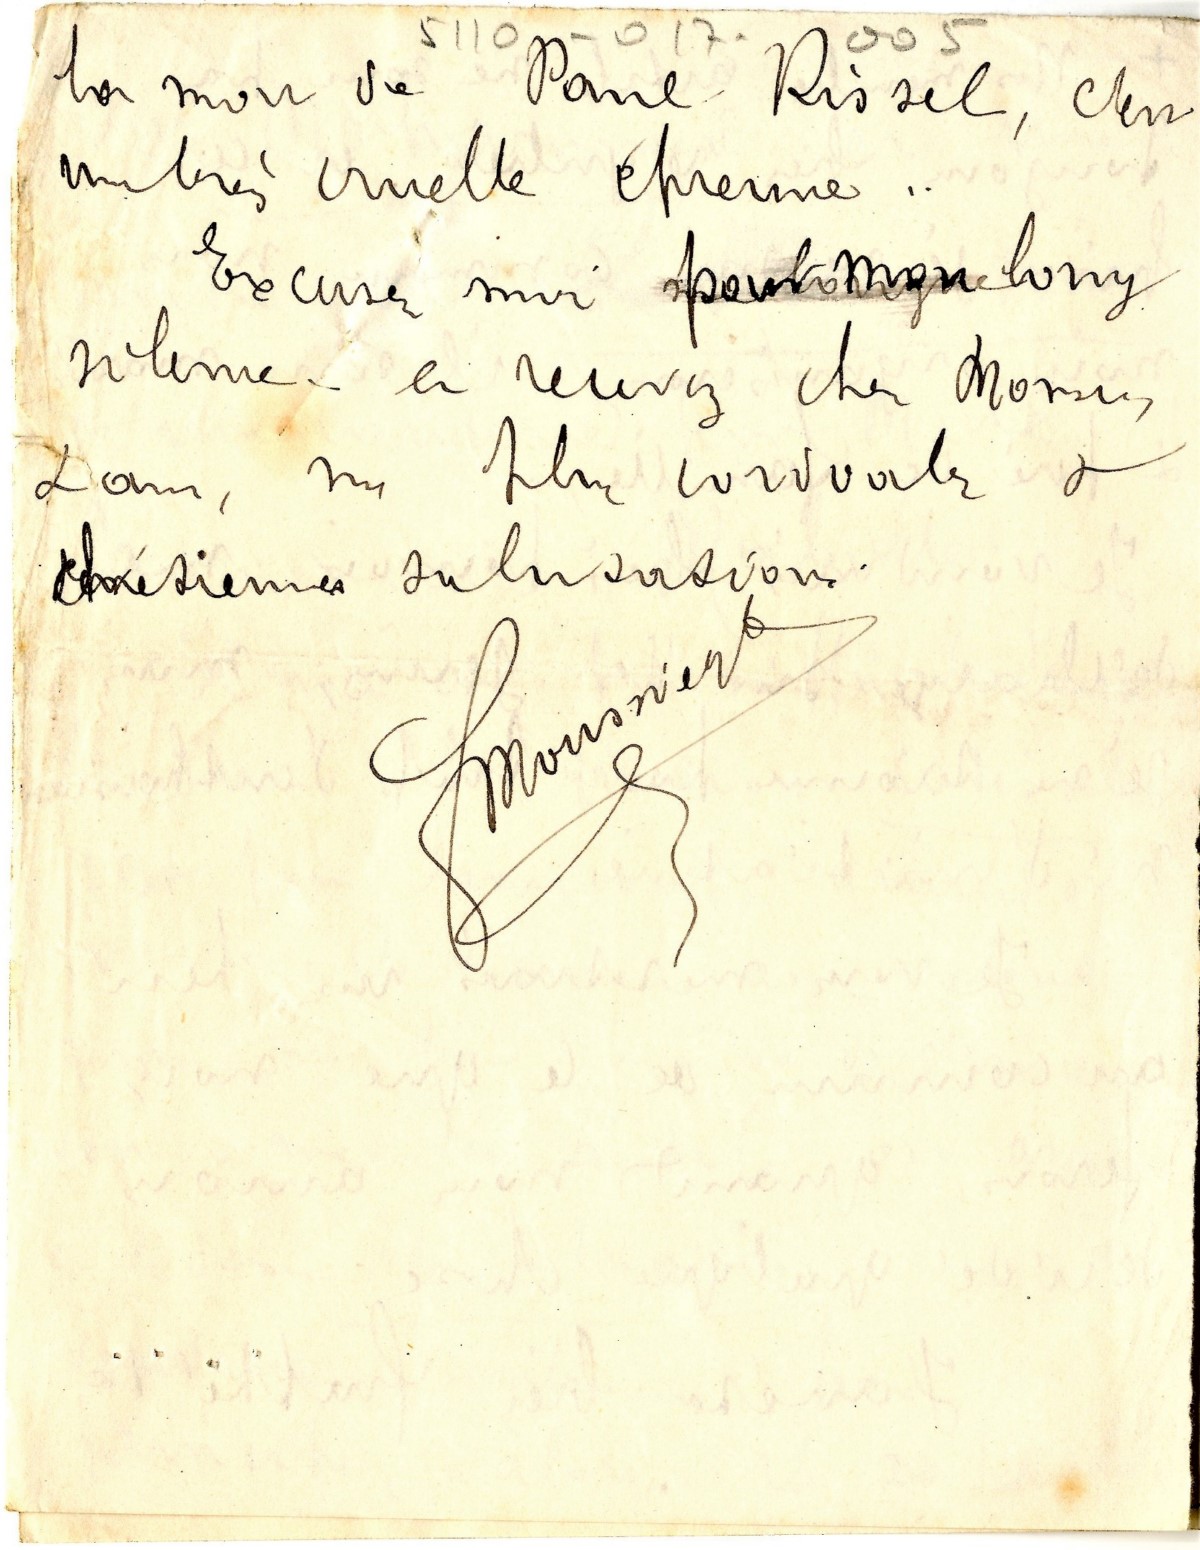 5110-017-005
la mort de Paul Rissel, c'est
une très cruelle épreuve ..
Excusez moi pour mon long
silence - et recevez cher Monsieur
Lami, mes plus cordiales &
chrétiennes salutations.
Mousnier